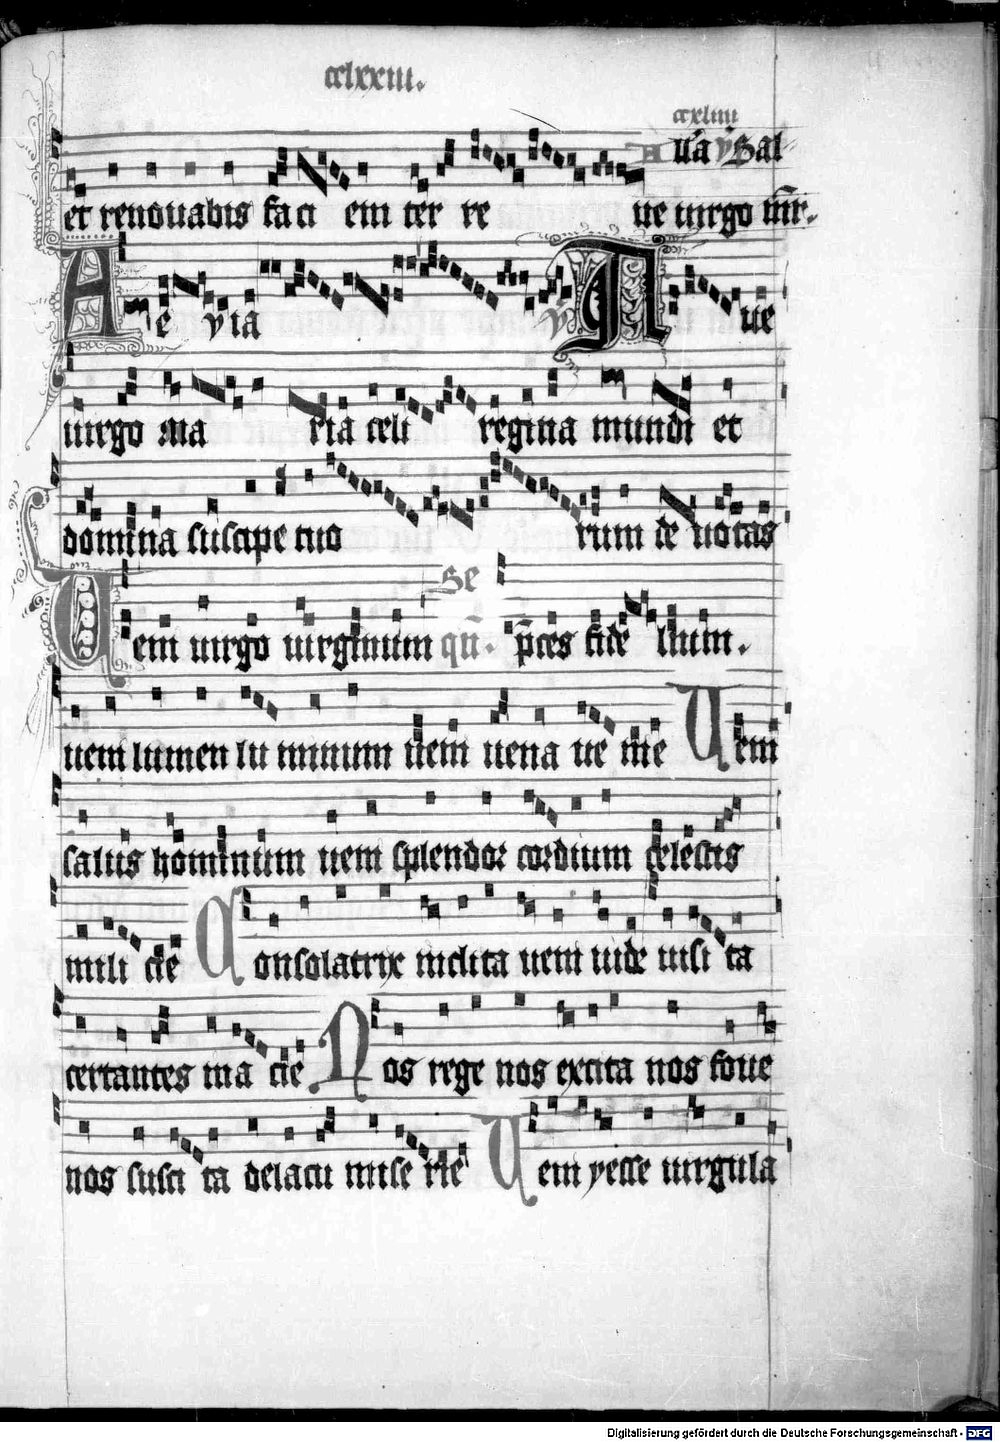 cclxxiii.
ccxliiii
A lla ẏ Sal
et renouabis faci em ter re ue uirgo mr̄.
Ae via ẏ Aue
uirgo ma ria celi regina mundi et
domina suscipe tuo rum de uotas
Se
Uem uirgo uirginum qm̄. p̄ces fide lium.
uem lumen lu minum uem uena ue nie Uem
salus hominum uem splendor cordium celestis
mili cie Consolatrix inclita uem uide uisi ta
certantes ma cie Nos rege nos excita nos foue
nos susci ta delacu mise rie Uem yesse uirgula
Digitalisierung gefördert durch die Deutsche Forschungsgemeinschaft - DFG